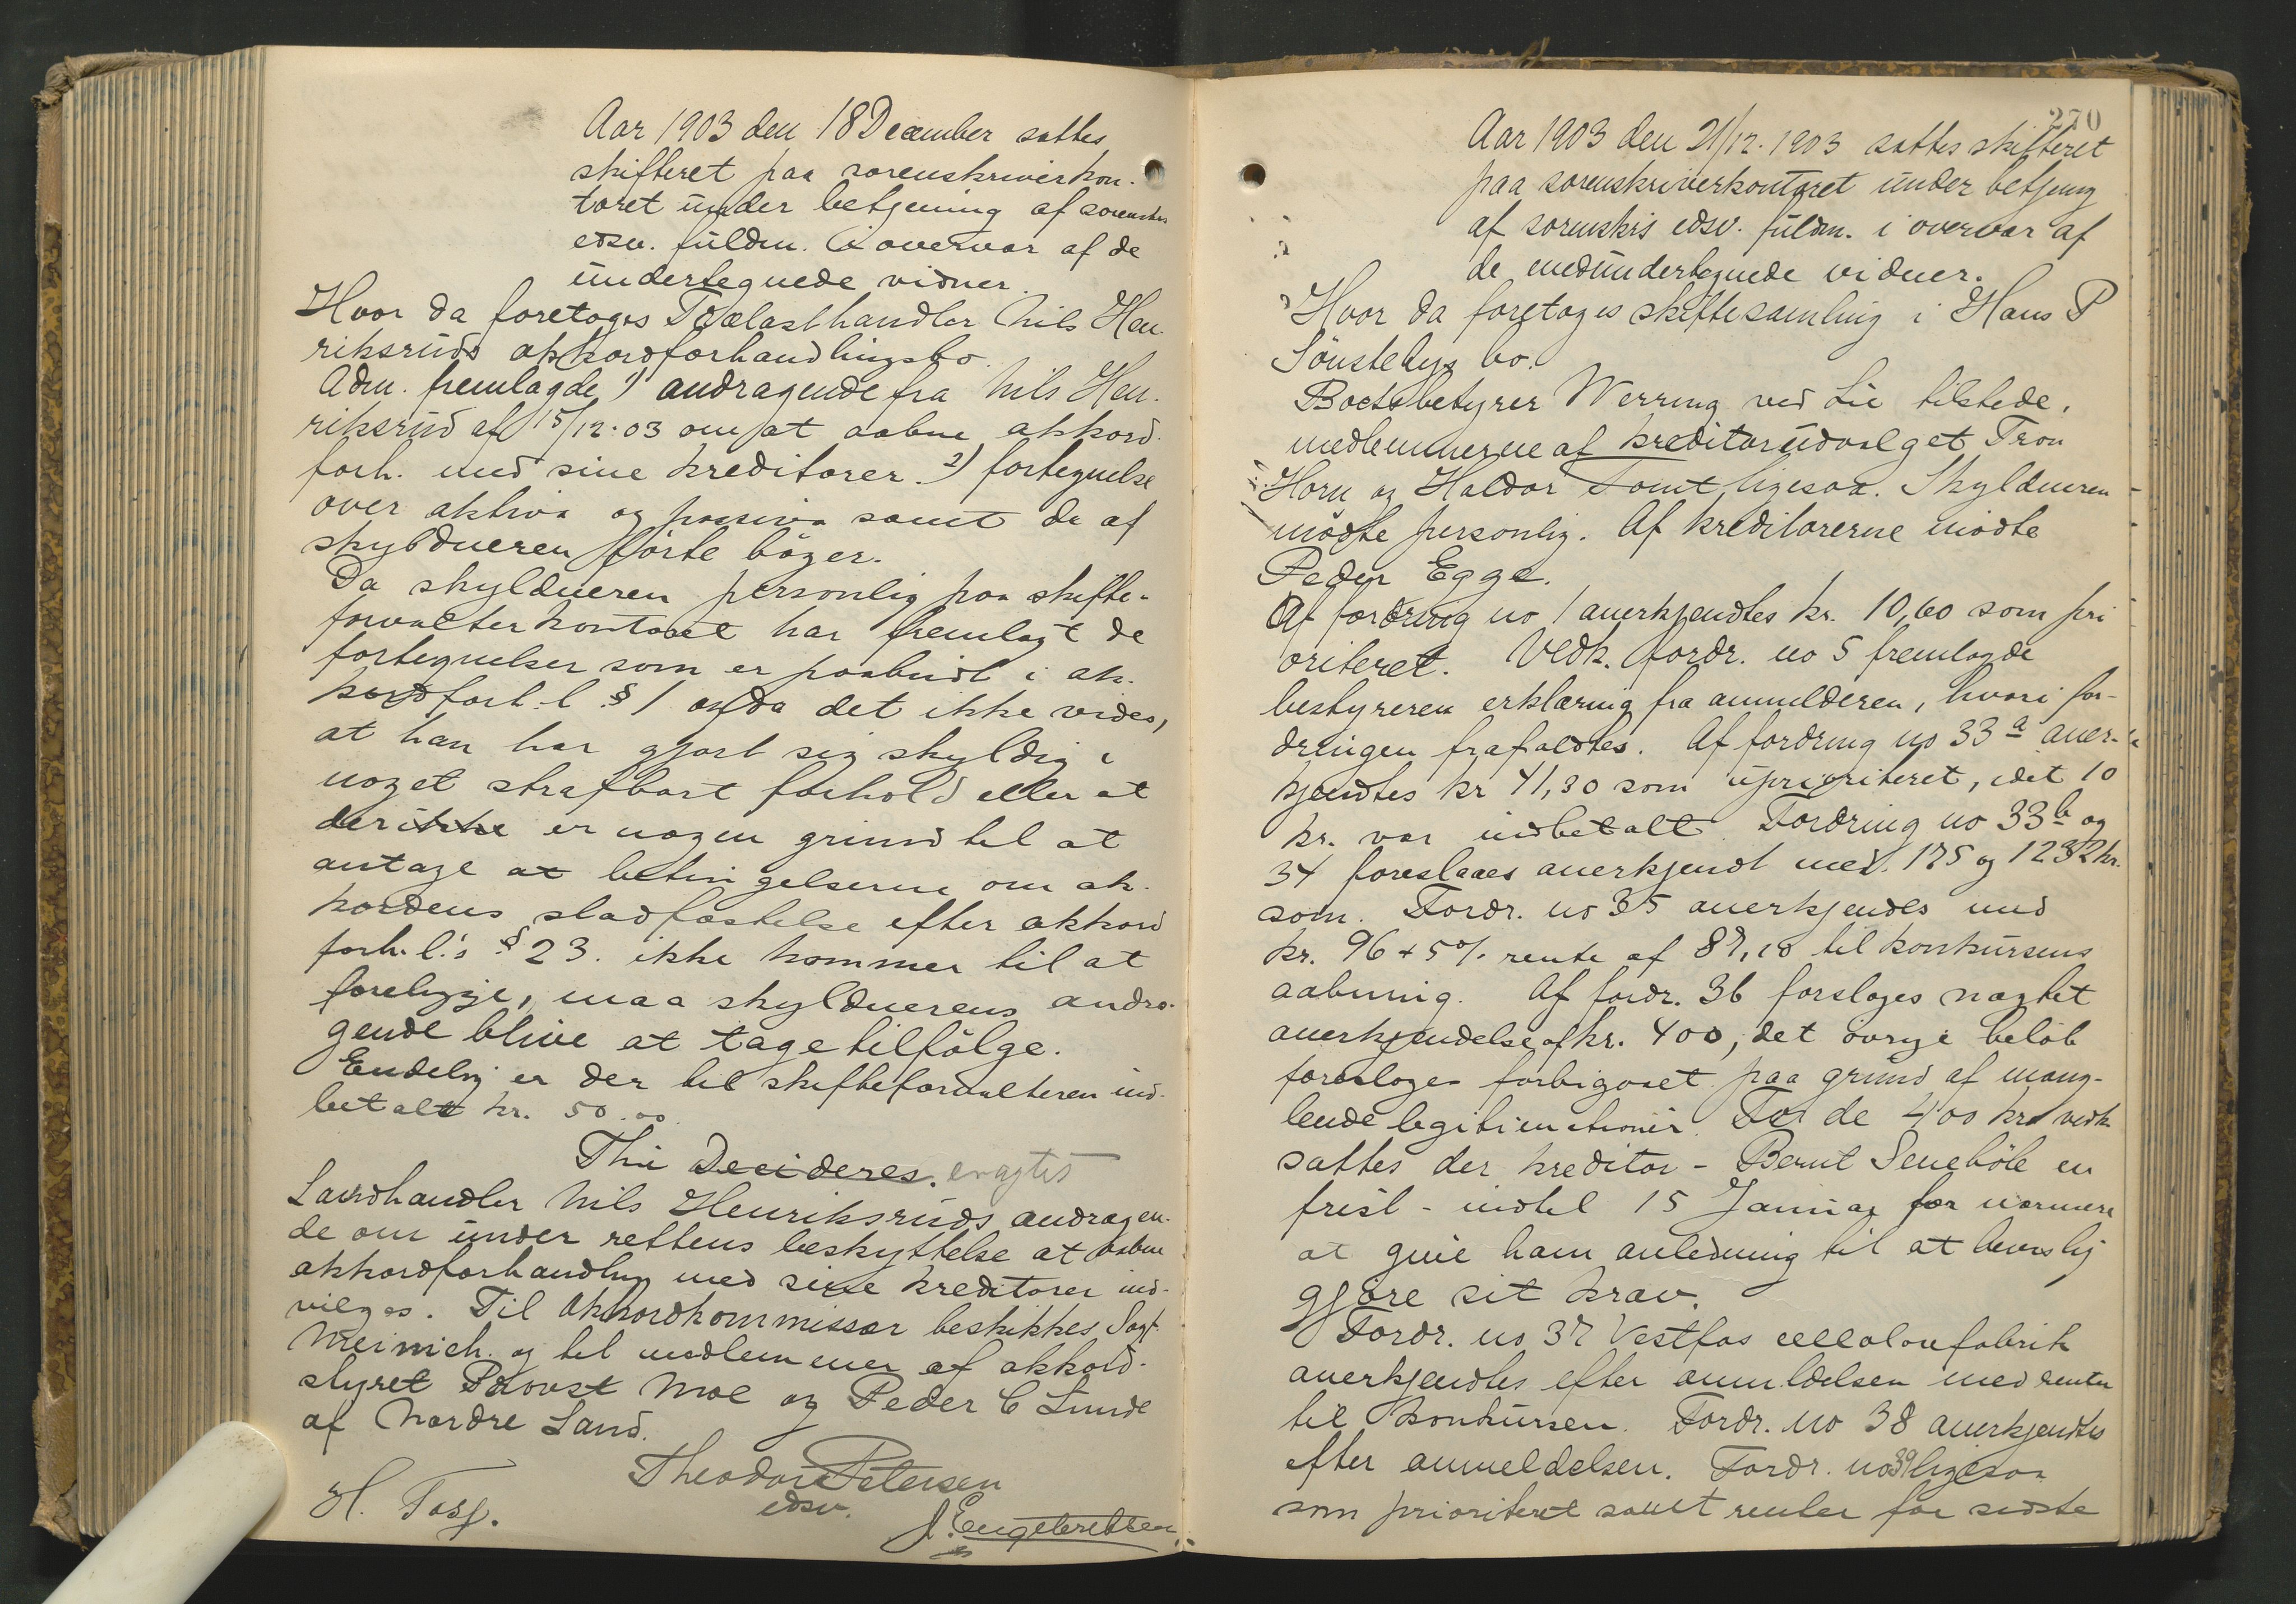 Aar 1903 den 18 December sattes
skifteret paa sorenskriverkon-
toret under betjening af sorenskrs
edsv. fuldm. i overvær af de
undertegnede vidner.
Hvor da foretoges Trælasthandler Nils Hen-
riksruds akkordforhandlingsbo.
Adm. fremlagde 1) andragende fra Nils Hen-
riksrud af 15/12.03 om at aabne akkord-
forh. med sine kreditorer. 2) fortegnelse
over aktiva og passiva samt de af
skyldneren förte böger.
Da skyldneren personlig paa skifte-
forvalterkontoret har fremlagt de
fortegnelser som er paabudt i ak-
kordforh.l. § 1 og da det ikke vides,
at han har gjort sig skyldig i
noget strafbart forhold eller at
der ikke er nogen grund til at
antage at betingelserne om ak-
kordens stadfæstelse efter akkord
forh.l.'s § 23. ikke kommer til at
foreligge, maa skyldnerens andra-
gende blive at tage tilfölge.
Endelig er der til skifteforvalteren ind-
betalt kr. 50.00
Thi Decideres. eragtes
Landhandler Nils Henriksruds andragen-
de om under rettens beskyttelse at aabne
akkordforhandling med sine kreditorer ind-
vilges. Til Akkordkommissær beskikkes Sagf.
Meinich. og til medlemmer af akkord-
styret Provst Moe og Peder C Lunde
af Nordre Land.
Theodor Petersen
edsv.
H. Tasj.
J. Engebretsen
270
Aar 1903 den 21/12. 1903 sattes skifteret
paa sorenskriverkontoret under betjeng
af sorenskrs edsv. fuldm. i overvær af
de medundertegnede vidner.
Hvor da foretoges skiftesamling i Hans P
Sönstebys bo.
Boetsbetyrer Werring ved Lie tilstede.
medlemmerne af kreditorudvalget Tron
Horn og Haldor Tomt ligesaa. Skyldneren
mödte personlig. Af kreditorerne mödte
Peder Egge.
Af fordring no 1 anerkjendtes kr. 10,60 som pri
oriteret. Vedk. fordr. no 5 fremlagde
bestyreren erklæring fra anmelderen, hvori for-
dringen frafaldtes. Af fordring no 33 a aner-
kjendtes kr 41,30 som uprioriteret, idet 10
kr. var indbetalt. Fordring no 33 b og
34 foreslaaes anerkjendt med. 175 og 1232 kr.
som. Fordr. no 35 anerkjendes med
kr. 96 + 5% rente af 87,10 til konkursens
aabning. Af fordr. 36 forsloges nægtet
anerkjendelse af kr. 400, det övrige belöb
foresloges forbigaaet paa grund af mang-
lende legitimationer. For de 400 kr vedk
sattes der kreditor - Bernt Seneböle en
frist - indtil 15 Januar for nærmere
at give ham anledning til at bevislig
gjöre sit krav.
Fordr. no 37 Vestfos cellolosefabrik
anerkjendtes efter anmeldelsen med renter
til konkursen. Fordr. no 38 anerkjendtes
efter anmeldelsen. Fordr. no 39 ligesaa
som prioriteret samt renter for sidste